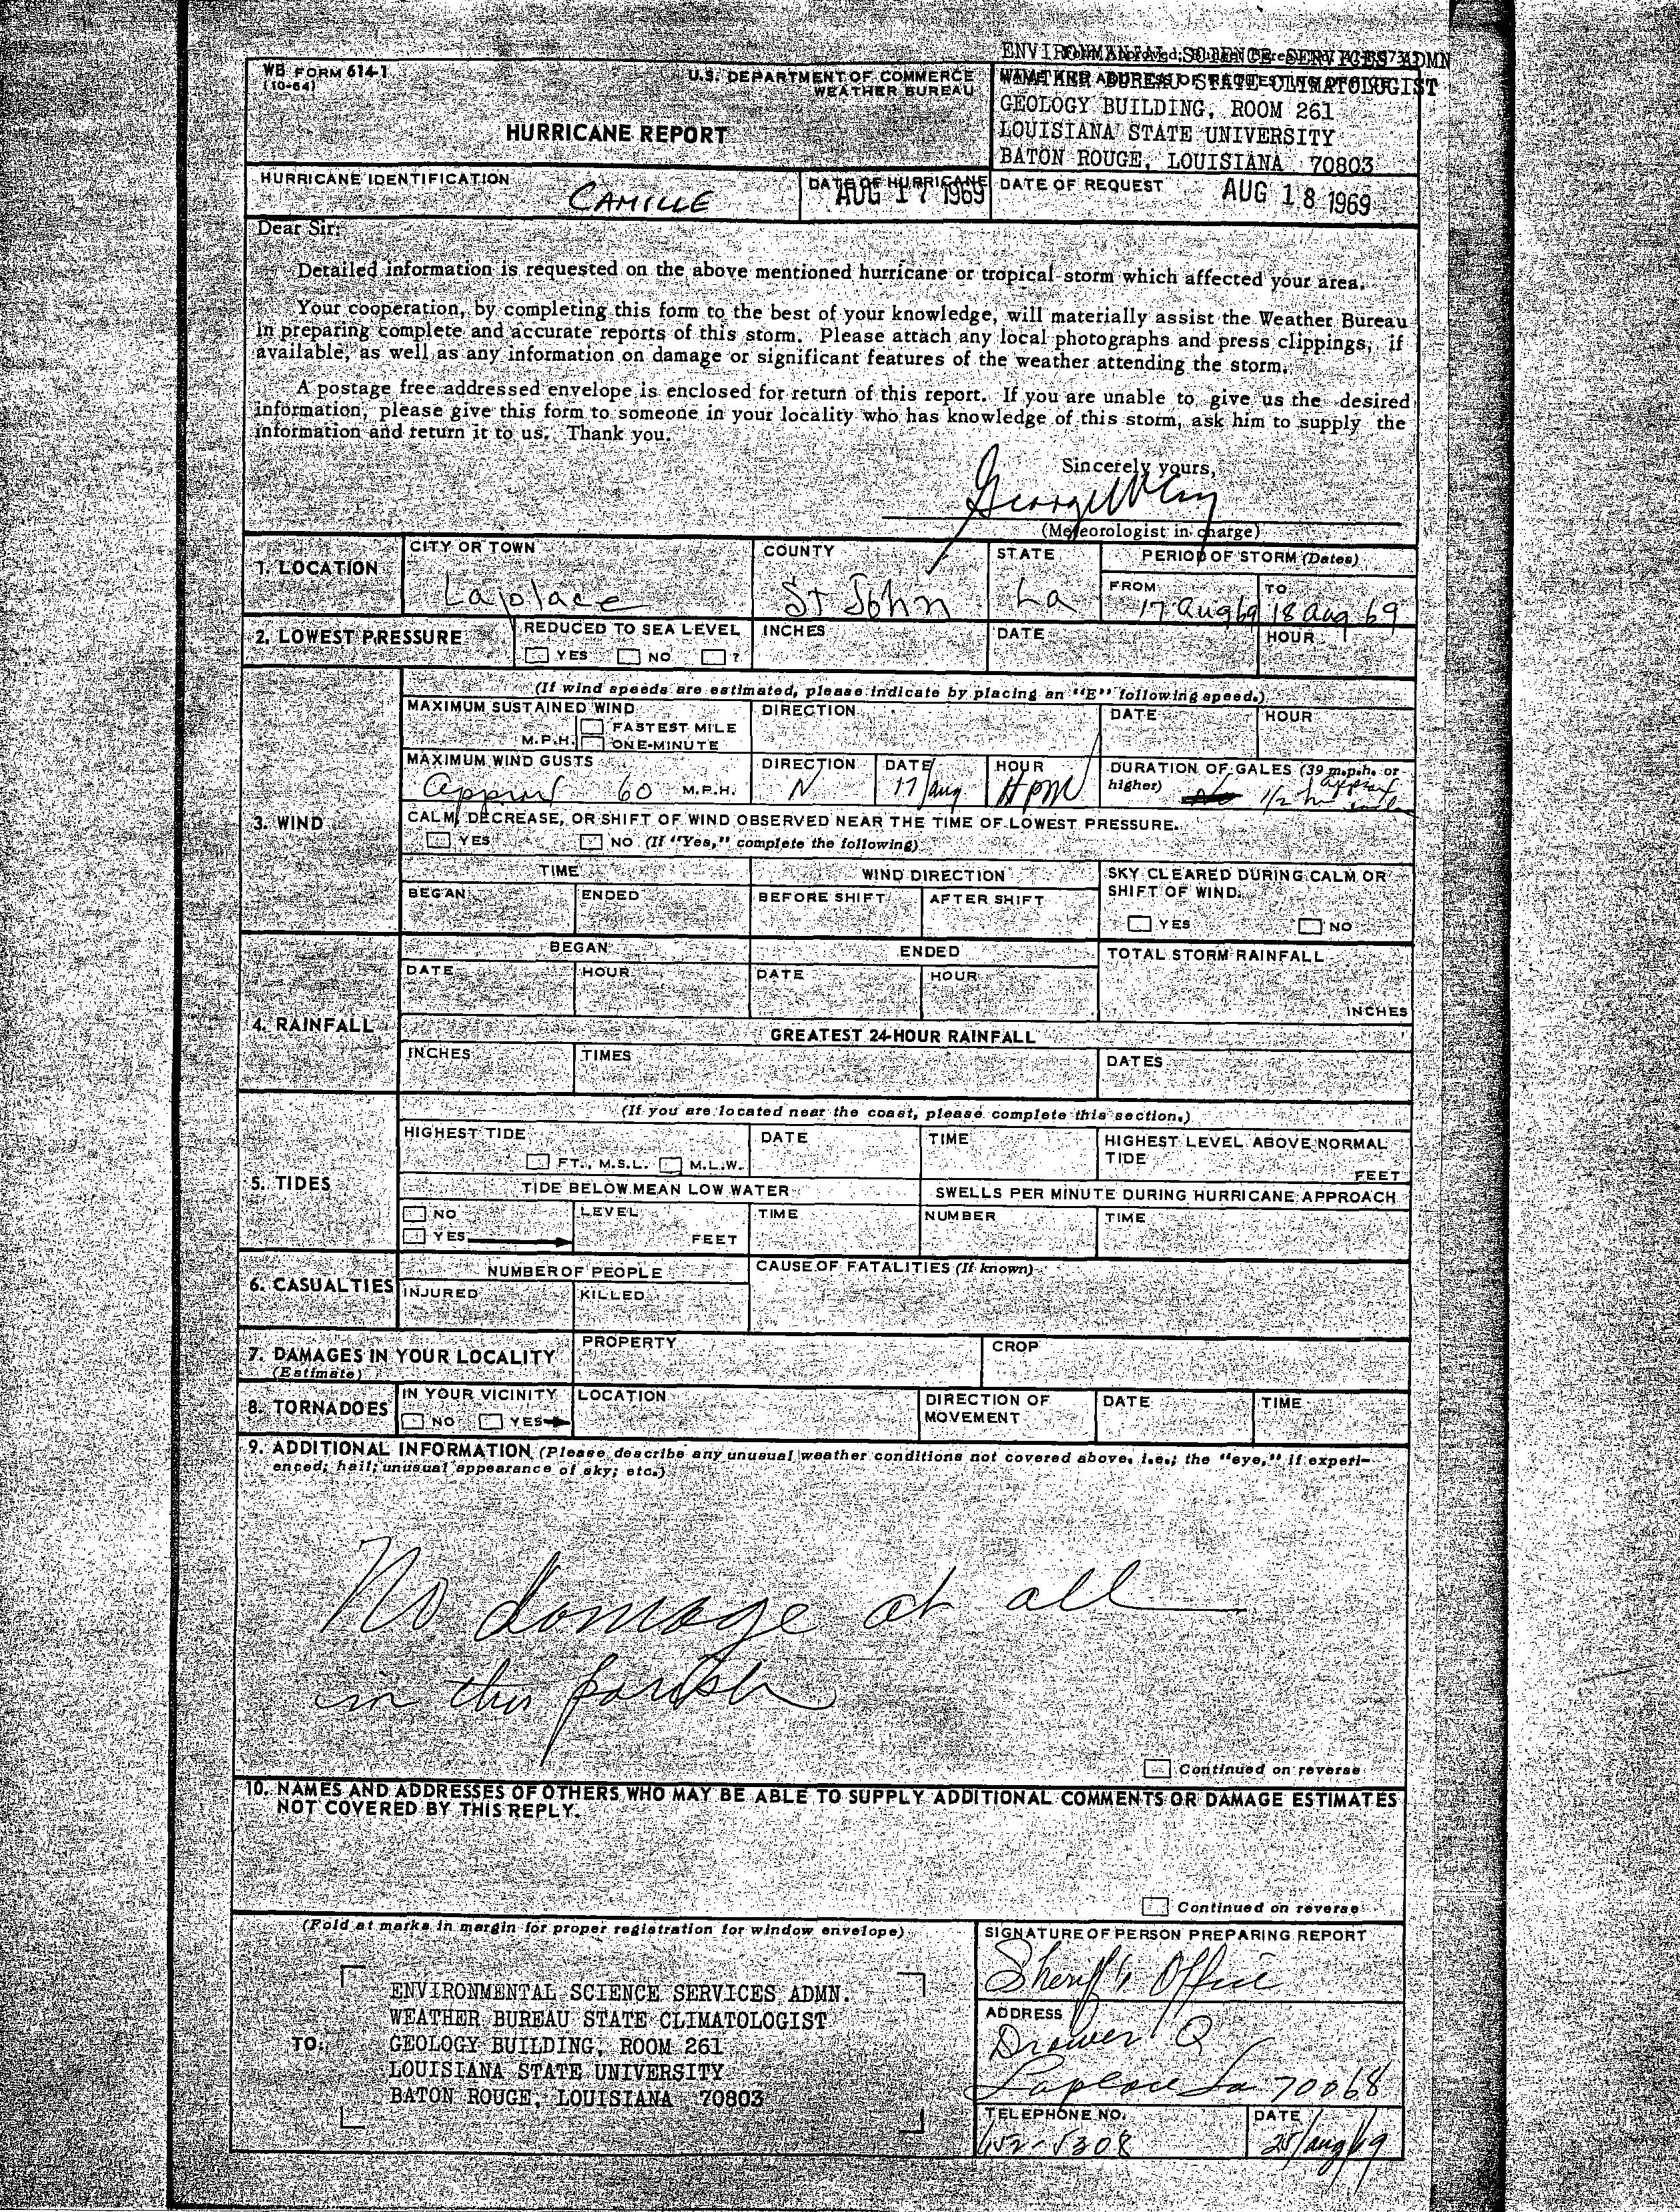 WB FORM 614-1
(10-64)
U.S. DEPARTMENT OF COMMERCE
WEATHER BUREAU
HURRICANE REPORT
GEOLOGY BUILDING, ROOM 261
LOUISIANA STATE UNIVERSITY
BATON ROUGE, LOUISIANA 70803
HURRICANE IDENTIFICATION
CAMILLE
DATE OF HURRICANE
AUG 17 1969
DATE OF REQUEST
AUG 18 1969
Dear Sir:
Detailed information is requested on the above mentioned hurricane or tropical storm which affected your area.
Your cooperation, by completing this form to the best of your knowledge, will materially assist the Weather Bureau
in preparing complete and accurate reports of this storm. Please attach any local photographs and press clippings, if
available, as well as any information on damage or significant features of the weather attending the storm.
A postage free addressed envelope is enclosed for return of this report. If you are unable to give us the desired
information, please give this form to someone in your locality who has knowledge of this storm, ask him to supply the
information and return it to us. Thank you.
Sincerely yours,
(Meteorologist in charge)
1. LOCATION
CITY OR TOWN
Laplace
COUNTY
St John
STATE
La
PERIOD OF STORM (Dates)
FROM
17 Aug 69
TO
18 Aug 69
2. LOWEST PRESSURE
REDUCED TO SEA LEVEL
YES NO ?
INCHES
DATE
HOUR
3. WIND
(If wind speeds are estimated, please indicate by placing an "E" following speed.)
MAXIMUM SUSTAINED WIND
M.P.H.
FASTEST MILE
ONE-MINUTE
DIRECTION
DATE
HOUR
MAXIMUM WIND GUSTS
Approx 60 M.P.H.
DIRECTION
N
DATE
17/Aug
HOUR
HOUR
DURATION OF GALES (39 m.p.h. or
higher)
approx
1/2 hr
CALM, DECREASE, OR SHIFT OF WIND OBSERVED NEAR THE TIME OF LOWEST PRESSURE.
YES NO (If "Yes," complete the following)
TIME
WIND DIRECTION
SKY CLEARED DURING CALM OR
SHIFT OF WIND.
YES NO
BEGAN
ENDED
BEFORE SHIFT
AFTER SHIFT
4. RAINFALL
BEGAN
ENDED
TOTAL STORM RAINFALL
INCHES
DATE
HOUR
DATE
HOUR
GREATEST 24-HOUR RAINFALL
INCHES
TIMES
DATES
5. TIDES
(If you are located near the coast, please complete this section.)
HIGHEST TIDE
FT., M.S.L. M.L.W.
DATE
TIME
HIGHEST LEVEL ABOVE NORMAL
TIDE
FEET
TIDE BELOW MEAN LOW WATER
SWELLS PER MINUTE DURING HURRICANE APPROACH
NO
YES
LEVEL
FEET
TIME
NUMBER
TIME
6. CASUALTIES
NUMBER OF PEOPLE
INJURED
KILLED
CAUSE OF FATALITIES (If known)
7. DAMAGES IN YOUR LOCALITY
(Estimate)
PROPERTY
CROP
8. TORNADOES
IN YOUR VICINITY
NO YES
LOCATION
DIRECTION OF
MOVEMENT
DATE
TIME
9. ADDITIONAL INFORMATION (Please describe any unusual weather conditions not covered above, i.e.; the "eye," if experi-
enced; hail; unusual appearance of sky; etc.)
No damage at all
in this parish
Continued on reverse
10. NAMES AND ADDRESSES OF OTHERS WHO MAY BE ABLE TO SUPPLY ADDITIONAL COMMENTS OR DAMAGE ESTIMATES
NOT COVERED BY THIS REPLY.
Continued on reverse
(Fold at marks in margin for proper registration for window envelope)
TO:
ENVIRONMENTAL SCIENCE SERVICES ADMN.
WEATHER BUREAU STATE CLIMATOLOGIST
GEOLOGY BUILDING, ROOM 261
LOUISIANA STATE UNIVERSITY
BATON ROUGE, LOUISIANA 70803
SIGNATURE OF PERSON PREPARING REPORT
Sheriff's Office
ADDRESS
Drawer Q
Laplace La 70068
TELEPHONE NO.
652-5308
DATE
25/Aug/69